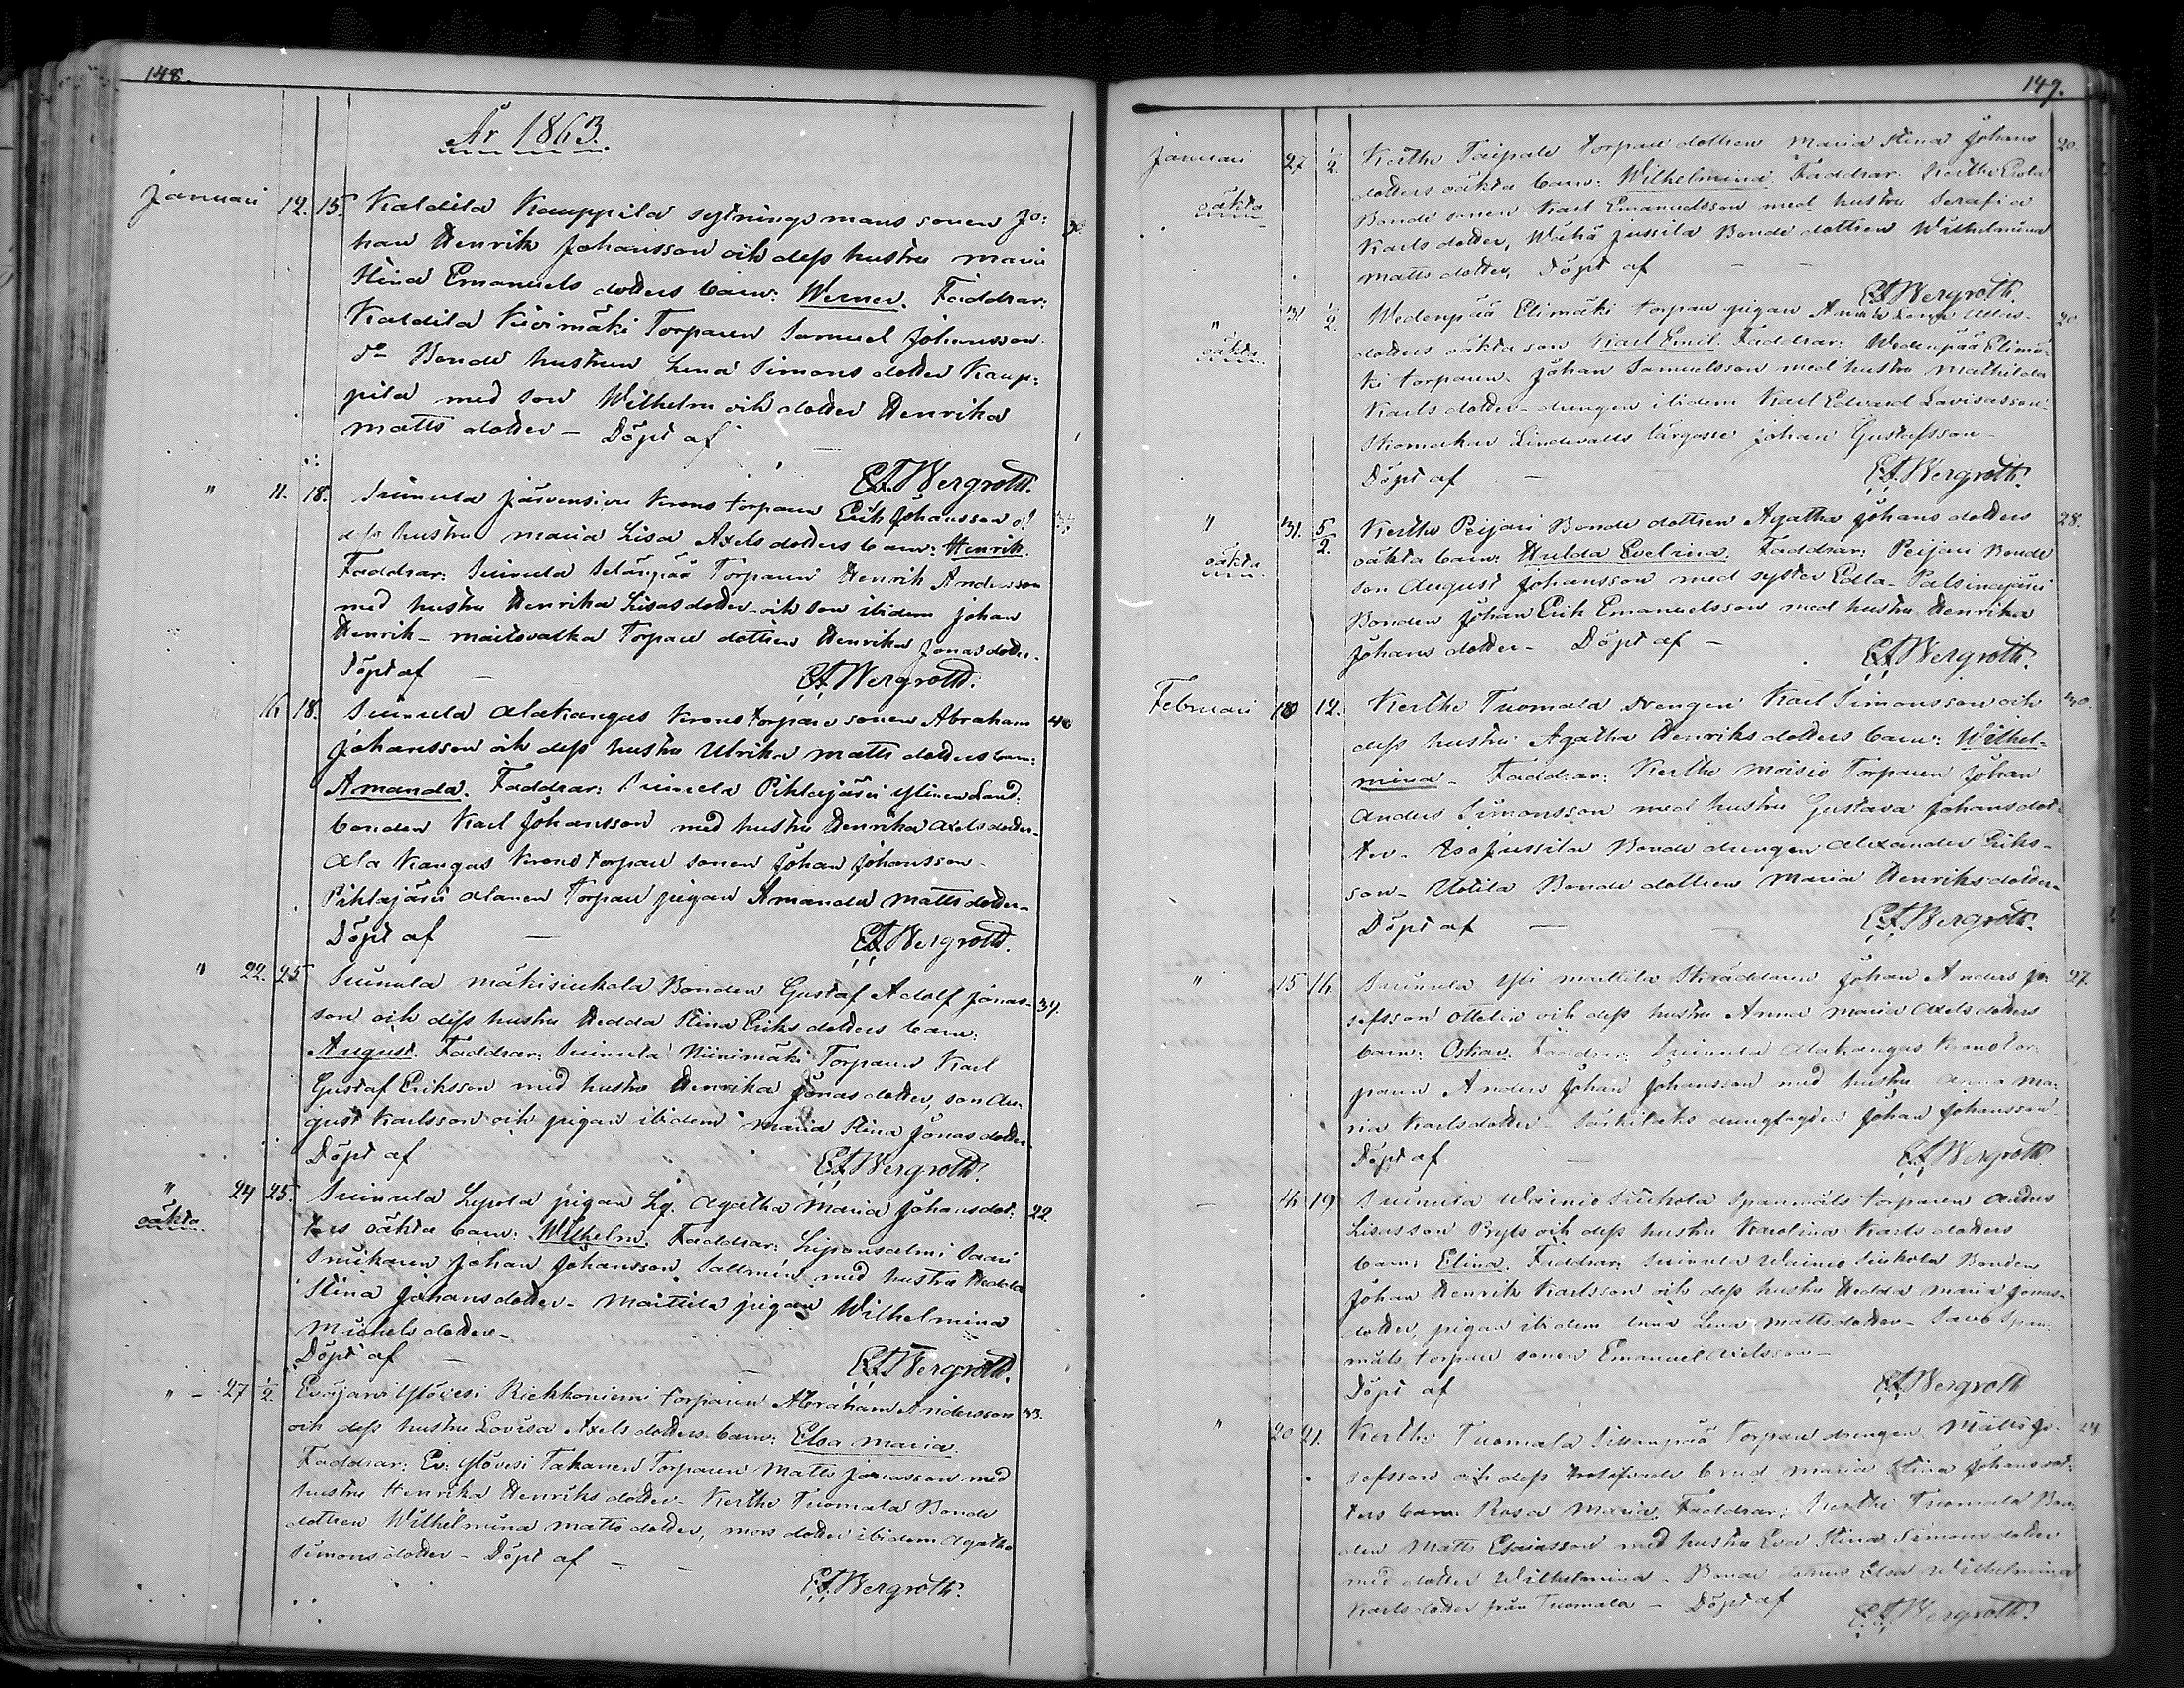 148.
År 1863.
Januari 12. 15. Kaldila Kauppila sytningsmans sonen Jo:
han Henrik Johansson och dess hustru Maria
Stina Emanuels dotters barn: Werner. Faddrar:
Kaldila Kivimäki Torparen Samuel Johansson
Bonde hustrun Lena Simons dotter Kaup:
pila med son Wilhelm och dotter Henrika
Matts dotter – Döpt af –
E.F. Wergroth.
" 11. 18. Suinula Järvensivu Krono torparen Erik Johansson o!
dess hustru Maria Lisa Axels dotters barn: Henrik.
Faddrar: Suinula Selänpää Torparen Henrik Andersson
med hustru Henrika Lisas dotter och son ibidem Johan
Henrik – Torpare dottren Henrika Jonas dotter.
Döpt af – E.F. Wergroth.
16 18. Suinula Alakangas Krono torpare sonen Abraham 40
Johansson och dess hustru Ulrika Matts dotters barn:
Amanda. Faddrar: Suinula Pihlajäsvi Ylinen Land:
bonden Karl Johansson med hustru Henrika Axels dotter –
Ala Kangas Krono torpare sonen Johan Johansson –
Pihlajäsvi Alanen Torpare pigan Amanda Matts dotter –
Döpt af – E.F. Wergroth.
" 22. 25 Suinula Mäkisiukola Bonden Gustaf Adolf Jonas- 37.
son och dess hustru Hedda Stina Eriks dotters barn:
August. Faddrar: Suinula Niinimäki Torparen Karl
Gustaf Eriksson med hustru Henrika Jonas dotter, son Au-
gust Karlsson och pigan ibidem Maria Stina Jonas dotter
Döpt af E.F. Wergroth.
" 24 25. Suinula Lepola pigan Lg. Agatha Maria Johansdot: 22.
oäkta
ters oäkta barn: Wilhelm. Faddrar: Liponselmi Saari
Snickaren Johan Johansson Sallmin med hustru Hedda
Stina Johans dotter – Maittila pigan Wilhelmina
Michels dotter –
Döpt af – – E.F. Wergroth.
" – 27 1/2. Eväjärvi Ylövesi Riekkoniemi torparen Abraham Andersson 43.
och dess hustru Lovisa Axels dotters barn: Elsa Maria.
Faddrar: Ev: Ylövesi Takanen Torparen Matts Jonasson med
hustru Henrika Henriks dotter – Kerthe Tuomala Bonde
dottren Wilhelmina Matts dotter, mors dotter ibidem Agatha
Simons dotter – Döpt af –
E.F. Wergroth.
149.
Januari 27 1/2. Kerthe Taipale torpare dottren Maria Stina Johans 20.
oäkta
dotters oäkta barn: Wilhelmina. Faddrar: Kerthe
Bonde sonen Karl Emanuelsson med hustru Serafia
Karls dotter, Wähä Jussila Bonde dottren Wilhelmina
Matts dotter, Döpt af – –
E.F. Wergroth.
" 31 1/2. Wedenpää Elimäki torpare pigan
oäkta
dotters oäkta son Karl Emil. Faddrar: Wedenpää Elimä-
ki torparen Johan Samuelsson med hustru Mathilda
Karls dotter – drengen ibidem Karl Edvard Lovisasson –
Skomakar Lindevalls lärgosse Johan Gustafsson –
Döpt af – E.F. Wergroth.
" 31. 5/2. Kerthe Peijari Bonde dottren Agatha Johans dotters 28.
oäkta
oäkta barn: Hulda Evelina. Faddrar: Peijari Bonde
son August Johansson med syster Edla – Palsinajäsvi
Bonden Johan Erik Emanuelsson med hustru Henrika
Johans dotter – Döpt af –
E.F. Wergroth.
Februari 10 12. Kerthe Tuomala Drengen Karl Simonsson och
dess hustru Agatha Henriks dotters barn: Wilhel-
mina – Faddrar: Kerthe Moisio Torparen Johan
Anders Simonsson med hustru Gustava Johans dot-
ter – Iso Jussila Bonde drengen Alexander Eriks-
son – Uotila Bonde dottren Maria Henriks dotter –
Döpt af – – E.F. Wergroth.
" 15 16 Suinula Yli Maittila Skräddaren Johan Anders Jo- 27.
sefsson Ottelin och dess hustru Anna Maria Axels dotters
barn: Oskar. Faddrar: Suinula Alakangas Kronotor-
paren Anders Johan Johansson med hustru Anna Ma-
ria Karls dotter – Johan Johansson
Döpt af – E.F. Wergroth.
– 16 19 Suinula Wainio Siukola Spanmåls torparen Anders
Lisasson Pryls och dess hustru Karolina Karls dotters
barn: Elina. Faddrar: Suinula Wainio Siukola Bonden
Johan Henrik Karlsson och dess hustru Hedda Maria Jonas-
dotter, pigan ibidem Lena Matts dotter – Span-
måls torpare sonen Emanuel Axelsson –
Döpt af – E.F. Wergroth
" 20 21. Kerthe Tuomala Torpare drengen Matts Jo- 24
sefsson och dess trolofvade brud Maria Stina Johans dot-
ters barn: Rosa Maria. Faddrar: Kerthe Tuomala Bon-
den Matts Esaiasson med hustru Eva Stina Simons dotter
med dotter Wilhelmina – Bonde dottren Elsa Wilhelmina
Karls dotter från Tuomala – Döpt af
E.F. Wergroth.